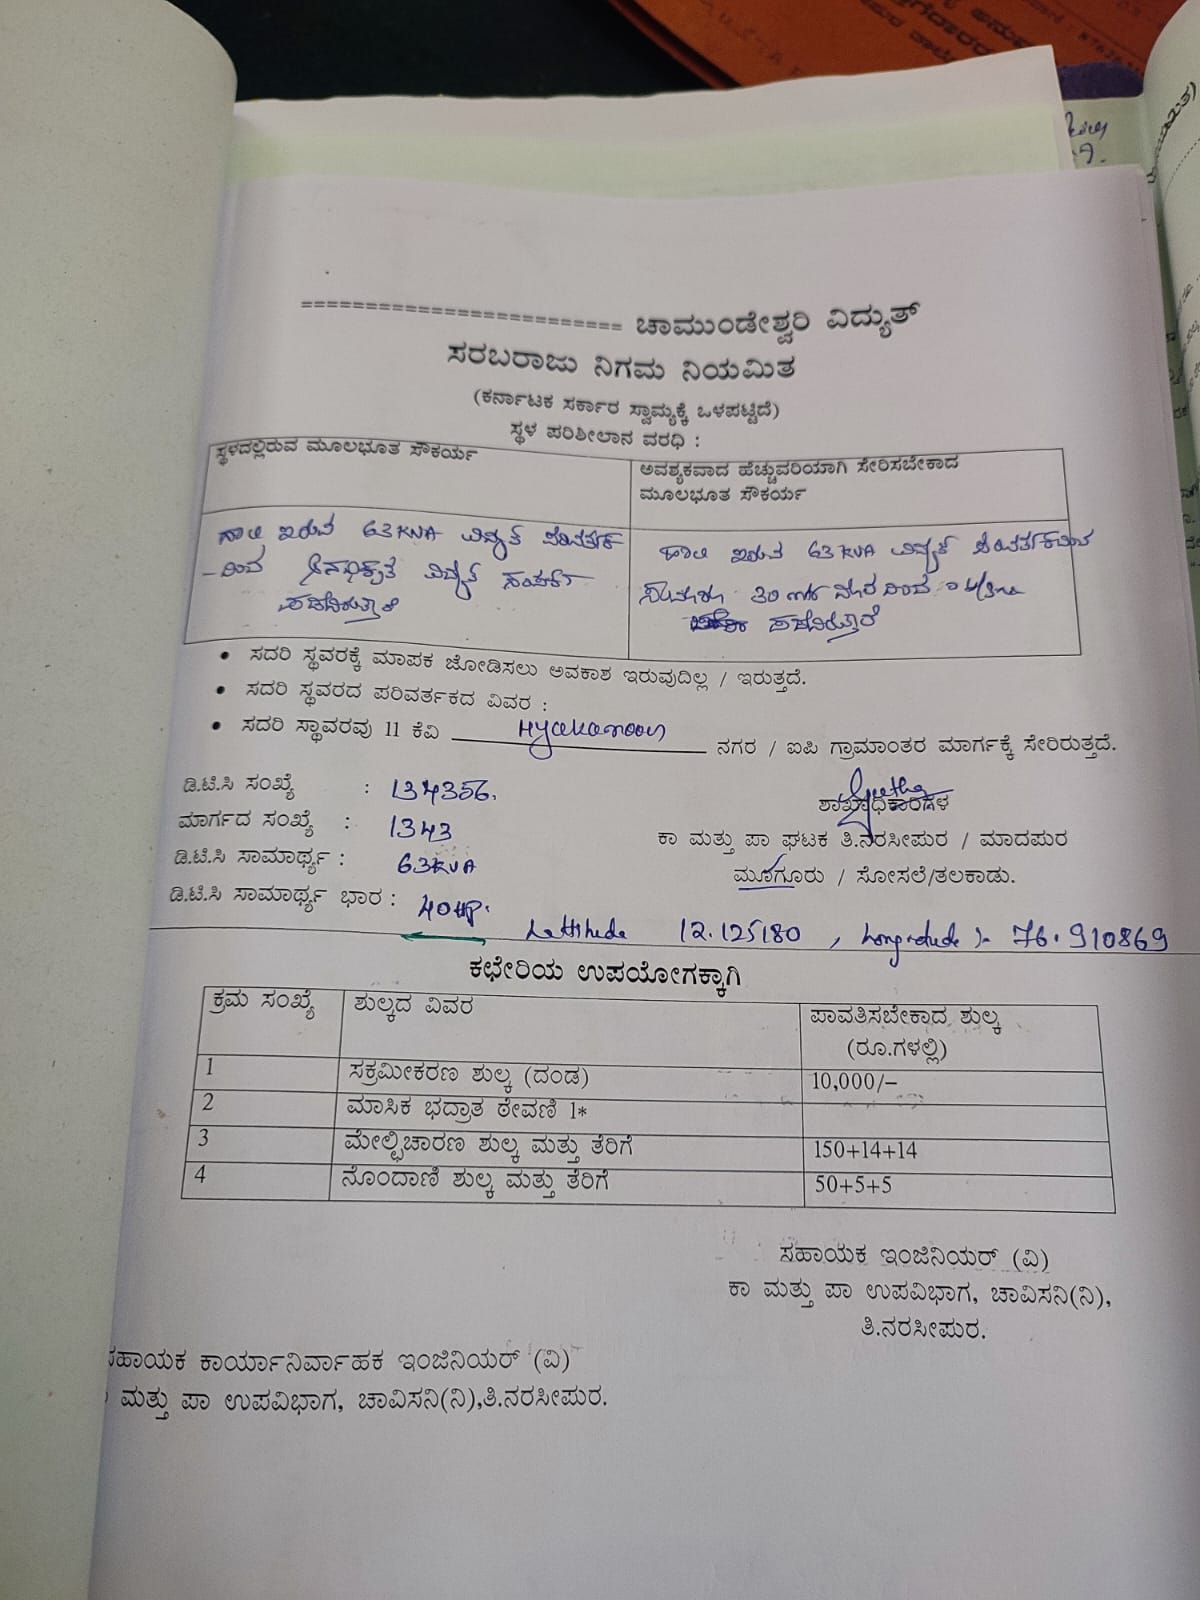 ========================= ಚಾಮುಂಡೇಶ್ವರಿ ವಿದ್ಯುತ್
ಸರಬರಾಜು ನಿಗಮ ನಿಯಮಿತ
(ಕರ್ನಾಟಕ ಸರ್ಕಾರ ಸ್ವಾಮ್ಯಕ್ಕೆ ಒಳಪಟ್ಟಿದೆ)
ಸ್ಥಳ ಪರಿಶೀಲಾನ ವರಧಿ :
ಸ್ಥಳದಲ್ಲಿರುವ ಮೂಲಭೂತ ಸೌಕರ್ಯ
ಅವಶ್ಯಕವಾದ ಹೆಚ್ಚುವರಿಯಾಗಿ ಸೇರಿಸಬೇಕಾದ
ಮೂಲಭೂತ ಸೌಕರ್ಯ
ಹಾಲಿ ಇರುವ 63 KVA ವಿದ್ಯುತ್ ಪರಿವರ್ತಕ
-ದಿಂದ ಅನಧಿಕೃತ ವಿದ್ಯುತ್ ಸಂಪರ್ಕ
ಪಡೆದಿರುತ್ತಾರೆ
ಹಾಲಿ ಇರುವ 63 KVA ವಿದ್ಯುತ್ ಪರಿವರ್ತಕದಿಂದ
30 ದೂರದಿಂದ
ಪಡೆದಿರುತ್ತಾರೆ
• ಸದರಿ ಸ್ಥವರಕ್ಕೆ ಮಾಪಕ ಜೋಡಿಸಲು ಅವಕಾಶ ಇರುವುದಿಲ್ಲ / ಇರುತ್ತದೆ.
• ಸದರಿ ಸ್ಥವರದ ಪರಿವರ್ತಕದ ವಿವರ :
• ಸದರಿ ಸ್ಥಾವರವು 11 ಕೆವಿ ನಗರ / ಐಪಿ ಗ್ರಾಮಾಂತರ ಮಾರ್ಗಕ್ಕೆ ಸೇರಿರುತ್ತದೆ.
ಡಿ.ಟಿ.ಸಿ ಸಂಖ್ಯೆ : 134356.
ಮಾರ್ಗದ ಸಂಖ್ಯೆ : 1343
ಡಿ.ಟಿ.ಸಿ ಸಾಮಾರ್ಥ್ಯ : 63KVA
ಡಿ.ಟಿ.ಸಿ ಸಾಮಾರ್ಥ್ಯ ಭಾರ : 40HP.
Geetha
ಶಾಖಾಧಿಕಾರಿಗಳ
ಕಾ ಮತ್ತು ಪಾ ಘಟಕ ತಿ.ನರಸೀಪುರ / ಮಾದಪುರ
ಮೂಗೂರು / ಸೋಸಲೆ/ತಲಕಾಡು.
Lattitude 12.125180 , Longitude :- 76.910869
ಕಛೇರಿಯ ಉಪಯೋಗಕ್ಕಾಗಿ
ಕ್ರಮ ಸಂಖ್ಯೆ ಶುಲ್ಕದ ವಿವರ ಪಾವತಿಸಬೇಕಾದ ಶುಲ್ಕ
(ರೂ.ಗಳಲ್ಲಿ)
1 ಸಕ್ರಮೀಕರಣ ಶುಲ್ಕ (ದಂಡ) 10,000/-
2 ಮಾಸಿಕ ಭದ್ರಾತ ಠೇವಣಿ 1*
3 ಮೇಲ್ವಿಚಾರಣ ಶುಲ್ಕ ಮತ್ತು ತೆರಿಗೆ 150+14+14
4 ನೊಂದಾಣಿ ಶುಲ್ಕ ಮತ್ತು ತೆರಿಗೆ 50+5+5
ಸಹಾಯಕ ಇಂಜಿನಿಯರ್ (ವಿ)
ಕಾ ಮತ್ತು ಪಾ ಉಪವಿಭಾಗ, ಚಾವಿಸನಿ(ನಿ),
ತಿ.ನರಸೀಪುರ.
ಸಹಾಯಕ ಕಾರ್ಯಾನಿರ್ವಾಹಕ ಇಂಜಿನಿಯರ್ (ವಿ)
ಮತ್ತು ಪಾ ಉಪವಿಭಾಗ, ಚಾವಿಸನಿ(ನಿ),ತಿ.ನರಸೀಪುರ.